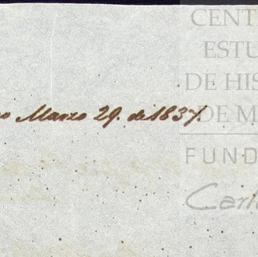 CENT
ESTU
DE HIS
DE M
o Marzo 29. de 1837.
FUND